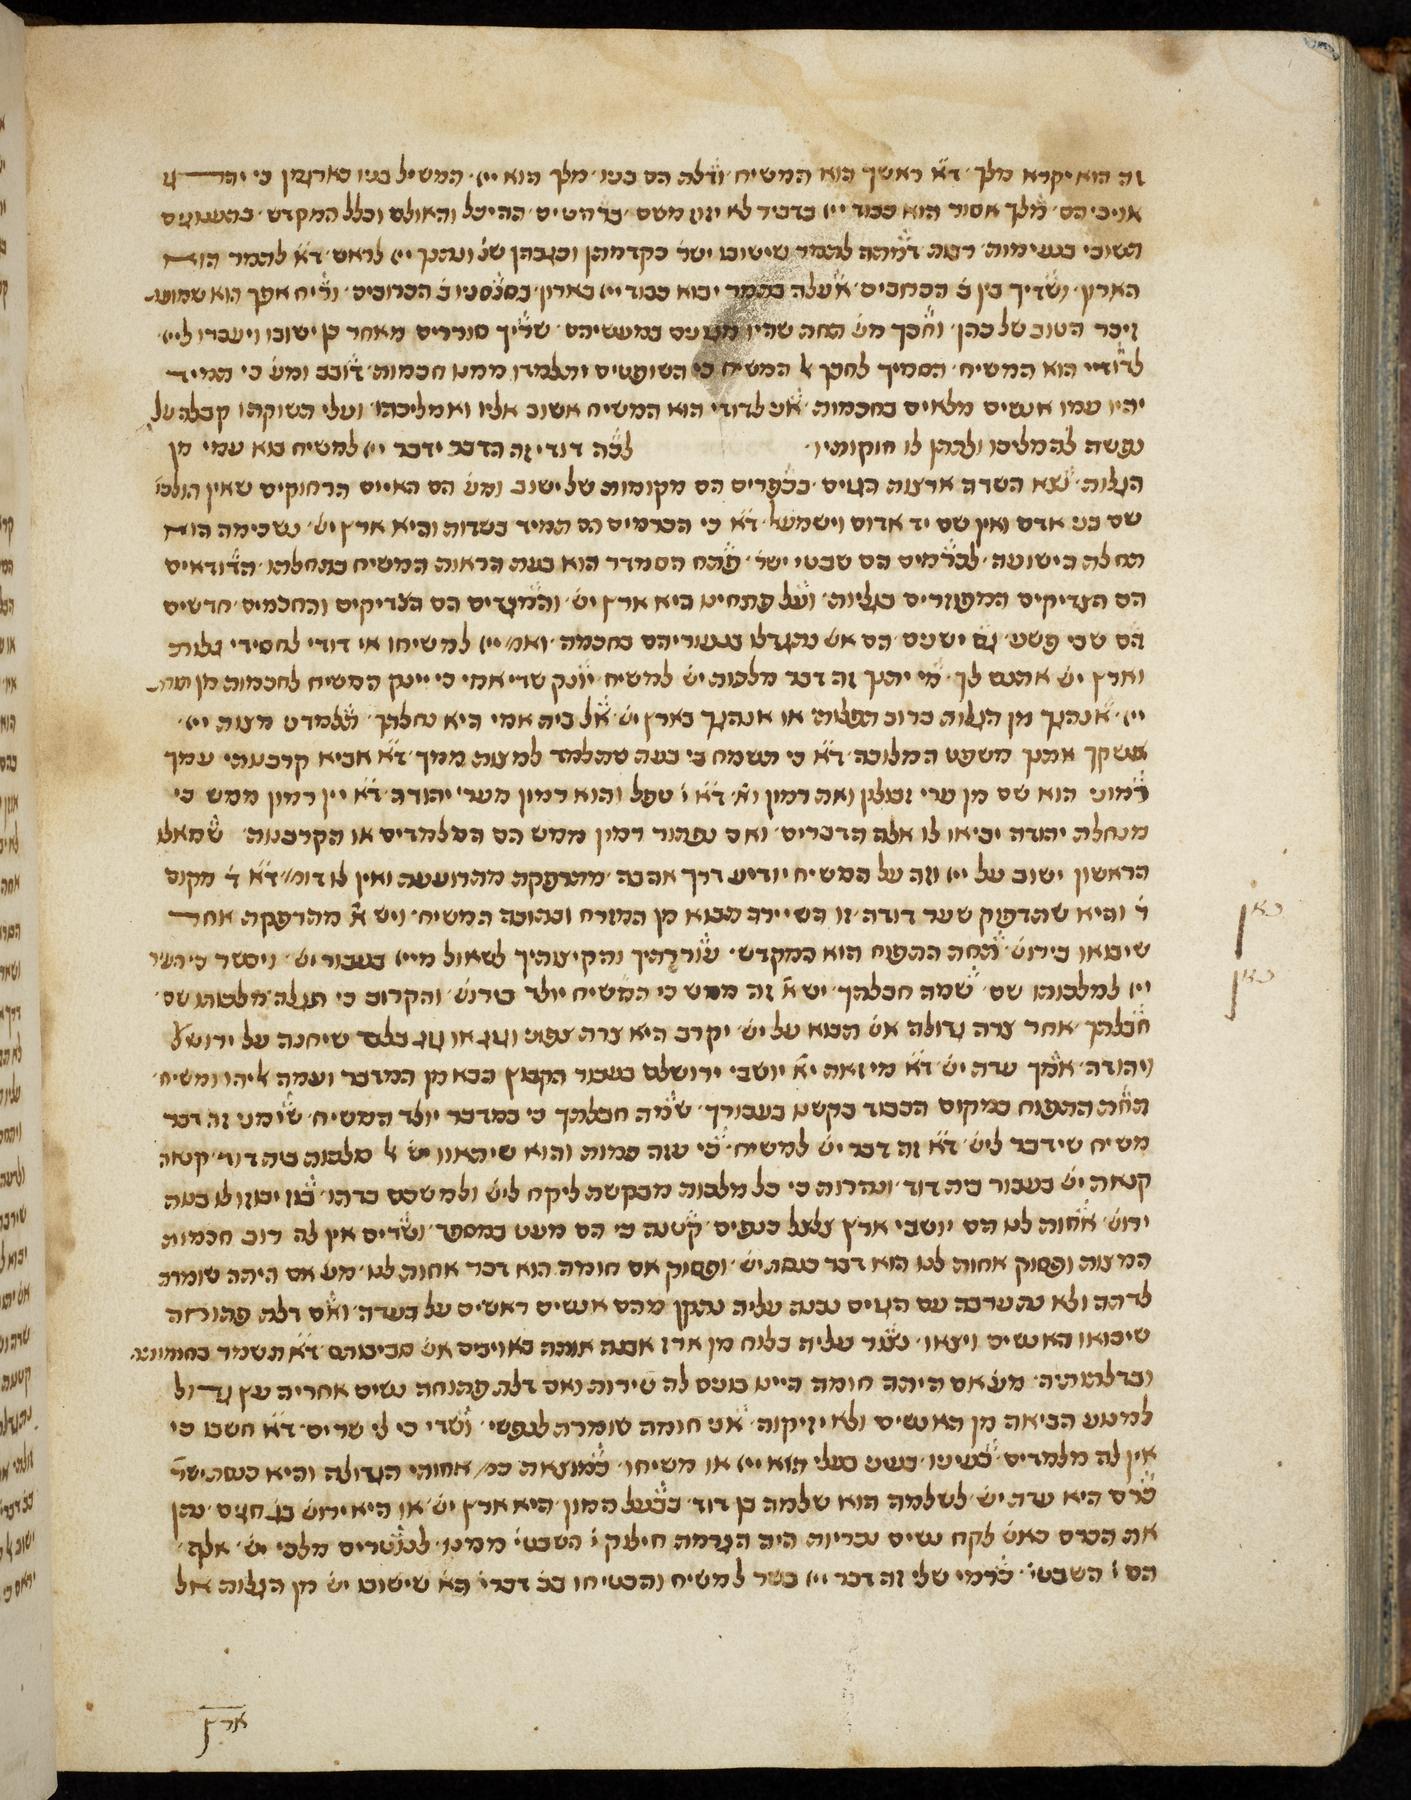 זה הוא יקרא מלך ד״א ראשך הוא המשיח ודלת הם בניו מלך הוא ייי המשיל בניו כארגמן כי יהיו
אויביהם מלך אסור הוא כבוד ייי בדביר לא יזוז משם ברהטים ההיכל והאולם וכלל המקדש בתענוגים
השובי בנעימות רצה דמתה לתמר שישובו ישר׳ בקדמתן וכגבהן של ונתנך ייי לראש ד״א לתמר הוא
הארץ ושדיך בין ב׳ הכרובים אעלה בתמר יבוא כבוד ייי בארון בסנסניו ב׳ הכרובים וריח אפך הוא שמוש
זיכר הטוב של כהן וחכך מש׳ תחת שהיו במעשיהם שריך סוררים מאחר כן ישובו ויעבדו לייי
לדודי הוא המשיח הסמיך לחכך המשיח כי השופטים ותלמדו ממנו חכמות דובב ומש׳ כי תמיד
יהיו עמו אנשים מלאים בחכמות אני לדודי הוא המשיח אשוב אליו ואמליכהו ועלי תשוקתו קבלה על
נפשה להמליכו ולתת לו חוקותיו לכה דודי זה הדבר ידבר ייי למשיח בוא עמי מן
הגלות נצא השדה ארצות הגוים בכפרים הם מקומות של ישוב ומש׳ הם האיים הרחוקים שאין הולכי׳
שם בני אדם ואין שם יד אדום וישמעאל ד״א כי הכרמים הם תמיד בשדות והיא ארץ יש׳ נשכימה הוא
תחלת הישועה לכרמים הם שבטי ישר׳ פתח הסמדר הוא בעת הראות המשיח בתחלתו הדודאים
הם הצדיקים המפוזרים בגליות ועל פתחינו היא ארץ יש׳ והמגדים הם הצדיקים והחכמים חדשים
הם שבי פשע גם ישנים הם אש׳ נתגדלו בנעוריהם בחכמה ואמ׳ ייי למשיחו אי דודי לחסידי גלות
וארץ יש׳ אתנם לך מי יתנך זה דבר מלכות יש׳ למשיח יונק שדי אמי כי יינק המשיח לחכמות מן תורת
ייי אנהגך מן הגלות ברוב תפלות או אנהגך בארץ יש׳ אל בית אמי היא נחלתך תלמדנו מצות ייי
אשקך אתנך משפט המלוכה ד״א כי תשמח בי בעת שתלמד למצות ממך ד״א אביא קרבנותי עמך
רמוני הוא שם מן ערי זבולן ואת רמון וא׳ ד״א ו׳ טפל והוא רמון מערי יהודה ד״א יין רמון ממש כי
מנחלת יהודה יביאו לו אלה הדברים ואם נפתור רמון ממש הם הם למדים או הקרבנות שמאלו
הראשון ישוב על ייי וזה על המשיח יודיע דרך אהבה מתרפקת מתרועעת ואין לו דומ׳ ד״א ר׳ מקום
ר׳ והיא שתדפוק שער דודה זו השיירה מבוא מן המזרח ובנובה המשיח ויש א׳ מתרפקת אחר
שיבואו בירוש׳ תחת התפוח הוא המקדש עוררתיך והקיצותיך לשאול מייי בעבור יש׳ ויכשר כי השיר
ייי למלכותו שם שמה חבלתך יש א׳ זה ממש כי המשיח יולד בירוש׳ והקרוב כי תגלה מלכותו שם
חבלתך אחר צרה גדולה אש׳ תבוא על יש׳ יקרב היא צרת צפוני וגוג או גוג בלבד שיחנה על ירושל׳
ויהודה אמך עדת יש׳ ד״א מי זאת יא׳ יושבי ירושלם בעבור הקבוץ הבא מן המדבר ועמה אליהו ומשיח
תחת התפוח במקום הכבוד בקשנו בעבורך שמה חבלתך כי במדבר יולד המשיח שימני זה דבר
משיח שידבר ליש׳ ד״א זה דבר יש׳ למשיח כי עזה כמות והוא שיתאוו יש׳ מלכות בית דוד קנאת
קנאת יש׳ בעבור בית דוד ונהרות כי כל מלכות מבקשת ליקח ליש׳ ולמשכם כדתו בוז יבוזו לו בעת
ירוש׳ אחות לנו הם יושבי ארץ צלצל כנפים קטנה כי הם מעט במספר ושדים אין לה רוב חכמות
המצות ופסוק אחות לנו הוא דבר כנסת יש׳ ופסוק אם חומה הוא דבר אחות לנו מש׳ אם היתה שומרת
לדתה ולא נתערבה עם הגוים נבנה עליה נתקן מהם אנשים ראשים על העדה ואם דלת פתוחה
שיבואו האנשים ויצאו נצור עליה בלוח מן ארז אבנה אותה באויבים אש׳ סביבותם ד״א תשמר בחומות
ובדלתותיה מש׳ אם היתה חומה היינו בונים לה טירות ואם דלת פתוחה נשים אחריה עץ גדול
למנוע הביאה מן האנשים ולא יזיקוה אני חומה שומרת לנפשי ושדי כי לי שרים ד״א חשבו כי
אין לה מלמדים בעיניו בעיני בעלי הוא ייי או משיחו כמוצאת כמ׳ אחותי הגדולה והיא כנסת ישר׳
כרם היא עדת יש׳ לשלמה הוא שלמה בן דוד בבעל המון היא ארץ יש׳ או היא ירוש׳ נתן
את הכרם כאש׳ לקח נשים נכריות היה הגרמת חילוק י׳ השבטי׳ ממנו לנוטרים מלכי יש׳ אלף
הם י׳ השבטי׳ כרמי שלי זה דבר ייי בשר למשיח והבטיחו בב׳ דברי׳ הא׳ שישובו יש׳ מן הגלות אל
ארץ
כאן
כאן